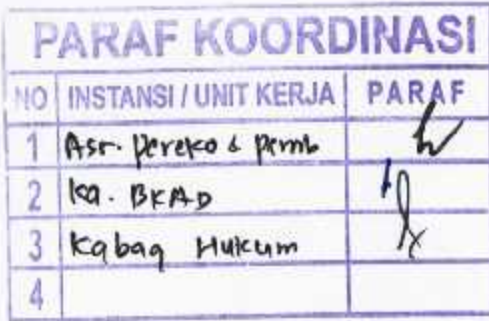 PARAF KOORDINASI
NO INSTANSI / UNIT KERJA PARAF
1 Asr. Pereko & Pemb
2 Ka. BKAD
3 Kabag Hukum
4